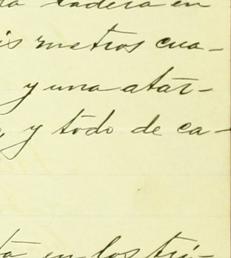 cadera en
is metros cua-
y una atar-
y todo de ca-
ta en los tri-